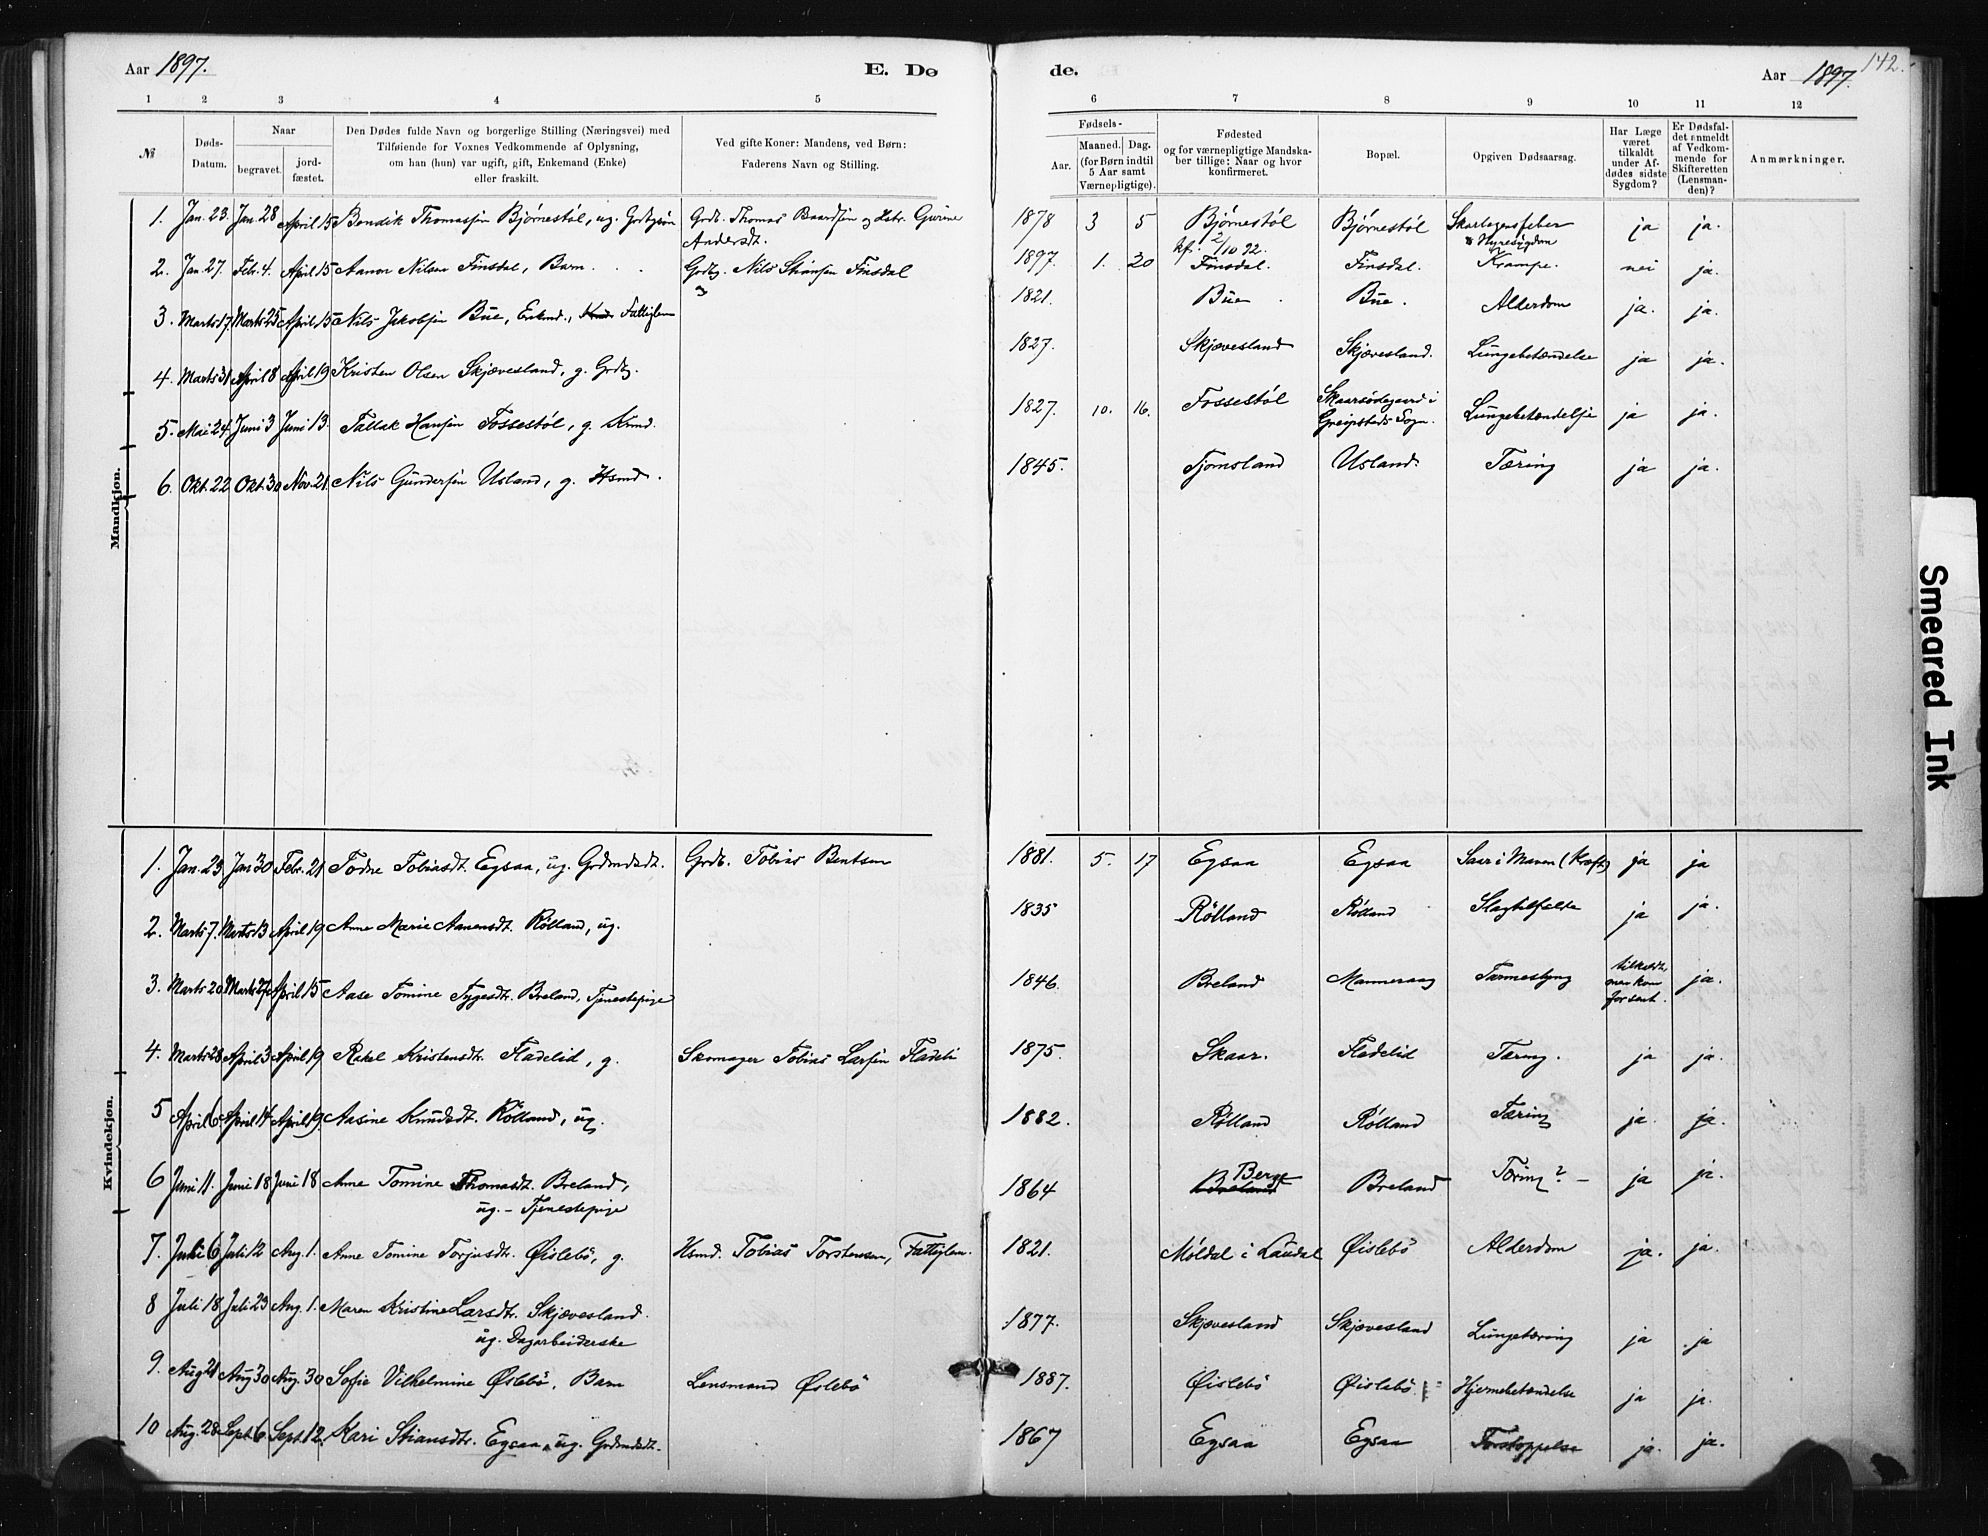 Aar 1897.
E. Dø
de.
Aar 1897.
142.
1 2 3 4 5 6 7 8 9 10 11 12
№
Døds-
Datum.
Naar
begravet.
jord-
fæstet.
Den Dødes fulde Navn og borgerlige Stilling (Næringsvei) med
Tilføiende for Voxnes Vedkommende af Oplysning,
om han (hun) var ugift, gift, Enkemand (Enke)
eller fraskilt.
Ved gifte Koner: Mandens, ved Børn:
Faderens Navn og Stilling.
Fødsels-
Aar.
Maaned. Dag.
(for Børn indtil
5 Aar samt
Værnepligtige).
Fødested
og for værnepligtige Mandska-
ber tillige: Naar og hvor
konfirmeret.
Bopæl.
Opgiven Dødsaarsag.
Har Læge
været
tilkaldt
under Af-
dødes sidste
Sygdom?
Er Dødsfal-
det anmeldt
af Vedkom-
mende for
Skifteretten
(Lensman-
den)?
Anmærkninger.
Mandkjøn.
1. Jan. 23. Jan. 28 April 15 Bendik Thomassen Bjørnestøl, ug. Grdbgsøn Grdb. Thomas Baardsen og Hstr. Gurine
Andersdt.
1878 3 5 Bjørnestøl Bjørnestøl Skarlagensfeber ja ja.
kf. 2/10 92. & Nyresygdom
2. Jan. 27. Febr. 4. April 15 Aanon Nilsen Finsdal, Barn. Grdbg. Nils Stiansen Finsdal
1897. 1. 20 Finsdal. Finsdal. Krampe. nei ja.
3. Marts 17. Marts 25 April 15 Nils Jakobsen Bue, Enkmd., Fattiglem
1821. Bue Bue. Alderdom ja. ja.
4. Marts 31 April 8 April 19 Kristen Olsen Skjævesland, g. Grdbg.
1827. Skjævesland Skjævesland. Lungebetændelse ja ja.
5. Mai 24. Juni 3 Juni 13. Tallak Hansen Fossestøl, g. Kmd.
1827. 10. 16. Fossestøl Skaarsødegaard i
Greipstads Sogn. Lungebetændelse ja ja.
6. Okt. 22 Okt. 30 Nov. 21. Nils Gundersen Usland, g. Hsmd.
1845. Tjomsland Usland. Tæring ja ja.
Kvindekjøn.
1. Jan. 23 Jan 30 Febr. 21 Todne Tobiasdt. Egsaa, ug. Grdmdsdt. Grdb. Tobias Bentsen
1881. 5. 17 Egsaa Egsaa Saar i Maven (Kræft) ja ja
2. Marts 7. Marts 13 April 19 Anne Marie Aanensdt. Rølland, ug.
1835 Rølland Rølland Slagtilfælde ja ja.
3. Marts 20 Marts 27 April 15 Aase Tomine Tygesdt. Breland, Tjenestepige
1846. Breland Manneraag Tarmeslyng tilkaldt,
men kom
for sent. ja.
4. Marts 28 April 3 April 19 Rakel Kristensdtr. Fladelid, g. Skomager Tobias Larsen Fladeli
1875. Skaar. Fladelid Tæring. ja ja.
5 April 6 April 14 April 19. Aasine Knudsdt. Rølland, ug.
1882. Rølland Rølland Tæring ja. ja.
6 Juni 11. Juni 18 Juni 18 Anne Tomine Thomasdt. Breland,
ug. - Tjenestepige
1864 Breland Berge Breland Tæring? - ja ja.
7. Juli 6 Juli 12 Aug. 1. Anne Tomine Torjusdt. Øislebø, g. Hsmd. Tobias Torstensen, Fattiglem.
1821. Møldal i Laudal Øislebø Alderdom ja. ja.
8 Juli 18 Juli 23 Aug. 1. Maren Kristine Larsdt. Skjævesland.
ug. Dagarbeiderske
1877. Skjævesland Skjævesland Lungetæring ja ja
9. Aug 21 Aug 30 Aug. 30 Sofie Vilhelmine Øslebø, Barn Lensmand Øslebø
1887. Øislebø Øislebø Hjernebetændelse ja ja.
10 Aug. 28 Sept. 6 Sept. 12. Kari Stiansdtr. Egsaa, ug. Grdmdsdt.
1867 Egsaa Egsaa Forstoppelse ja. ja.
Smeared Ink